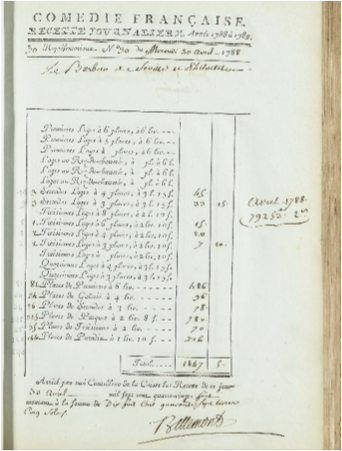 COMEDIE FRANÇAISE.
RECETTE JOURNALIERE. Année 1788 à 1789.
30 Représentation. N.º 30 du Mercredi 30 Avril 1788
Le Barbier de Séville et
Premières Loges à 6 places, à 6 liv.
Premières Loges à 5 places, à 6 liv.
Premières Loges à places, à 6 liv.
Loges au Rez-de-chaussée, à pl. à 6 l.
Loges au Rez-de-chaussée, à pl. à 6 l.
Loges au Rez-de-chaussée, à pl. à 6 l.
3. Secondes Loges à 4 places, à 3 l. 15 s. 45
3. Secondes Loges à 3 places, à 3 l. 15 s. 33 15
Troisièmes Loges à 8 places, à 2 l. 10 s.
1. Troisièmes Loges à 6 places, à 2 l. 10 s. 15
2. Troisièmes Loges à 4 places, à 2 l. 10 s. 20
1. Troisièmes Loges à 3 places, à 2 l. 10 s. 7 10
Troisièmes Loges à places, à l.
Quatrièmes Loges à 4 places, à 3 l. 15 s.
Quatrièmes Loges à 3 places, à 3 l. 15 s.
81 Places de Premières à 6 liv. 486
24 Places de Galerie à 4 liv. 96
26 Places de Secondes à 3 liv. 78
325 Places de Parquet à 2 liv. 8 s. 780
35 Places de Troisièmes à 2 liv. 70
144 Places de Paradis à 1 liv. 10 s. 216
Total 1847 5
Avril 1788
Arrêté par moi Contrôleur de la Caisse les Recettes de ce jour
30 Avril mil sept cent quatre-vingt huit
montant à la somme de Dix huit Cent quarante Sept livres
Cinq Sols
Bellemont